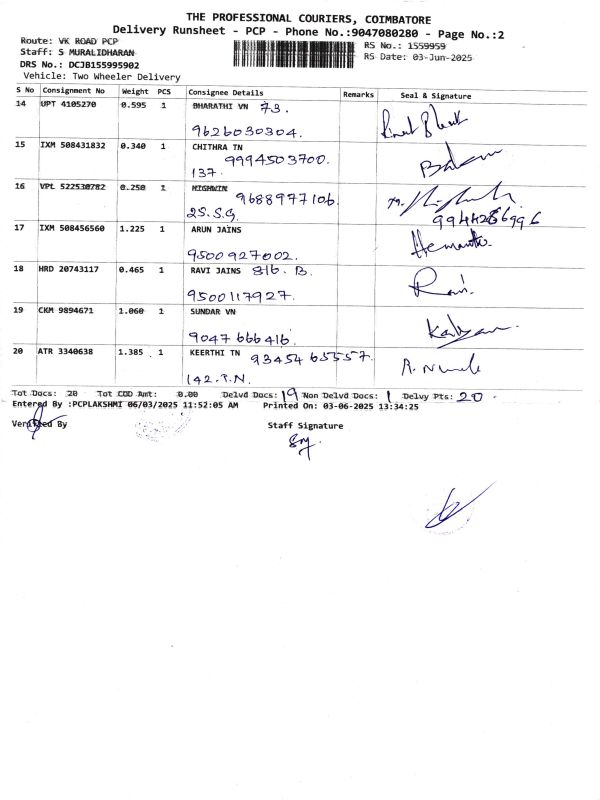 THE PROFESSIONAL COURIERS, COIMBATORE
Delivery Runsheet - PCP - Phone No.:9047080280 - Page No.:2
Route: VK ROAD PCP RS No.: 1559959
Staff: S MURALIDHARAN RS Date: 03-Jun-2025
DRS No.: DCJB155995902
Vehicle: Two Wheeler Delivery
S No Consignment No Weight PCS Consignee Details Remarks Seal & Signature
14 UPT 4105270 0.595 1 BHARATHI VN 73.
9626030304.
15 IXM 508431832 0.340 1 CHITHRA TN
9994503700.
137.
16 VPL 522530782 0.250 1 HIGHWIN
9688977106.
25.S.G.
17 IXM 508456560 1.225 1 ARUN JAINS Hemantha
9500927002.
18 HRD 20743117 0.465 1 RAVI JAINS 816. B. Ravi
9500117927.
19 CKM 9894671 1.060 1 SUNDAR VN
9047666416. Kalyan
20 ATR 3340638 1.385 1 KEERTHI TN 9345465557.
142.P.N.
Tot Docs: 20 Tot COD Amt: 0.00 Delvd Docs: 19 Non Delvd Docs: 1 Delvy Pts: 20.
Entered By :PCPLAKSHMI 06/03/2025 11:52:05 AM Printed On: 03-06-2025 13:34:25
Verified By Staff Signature